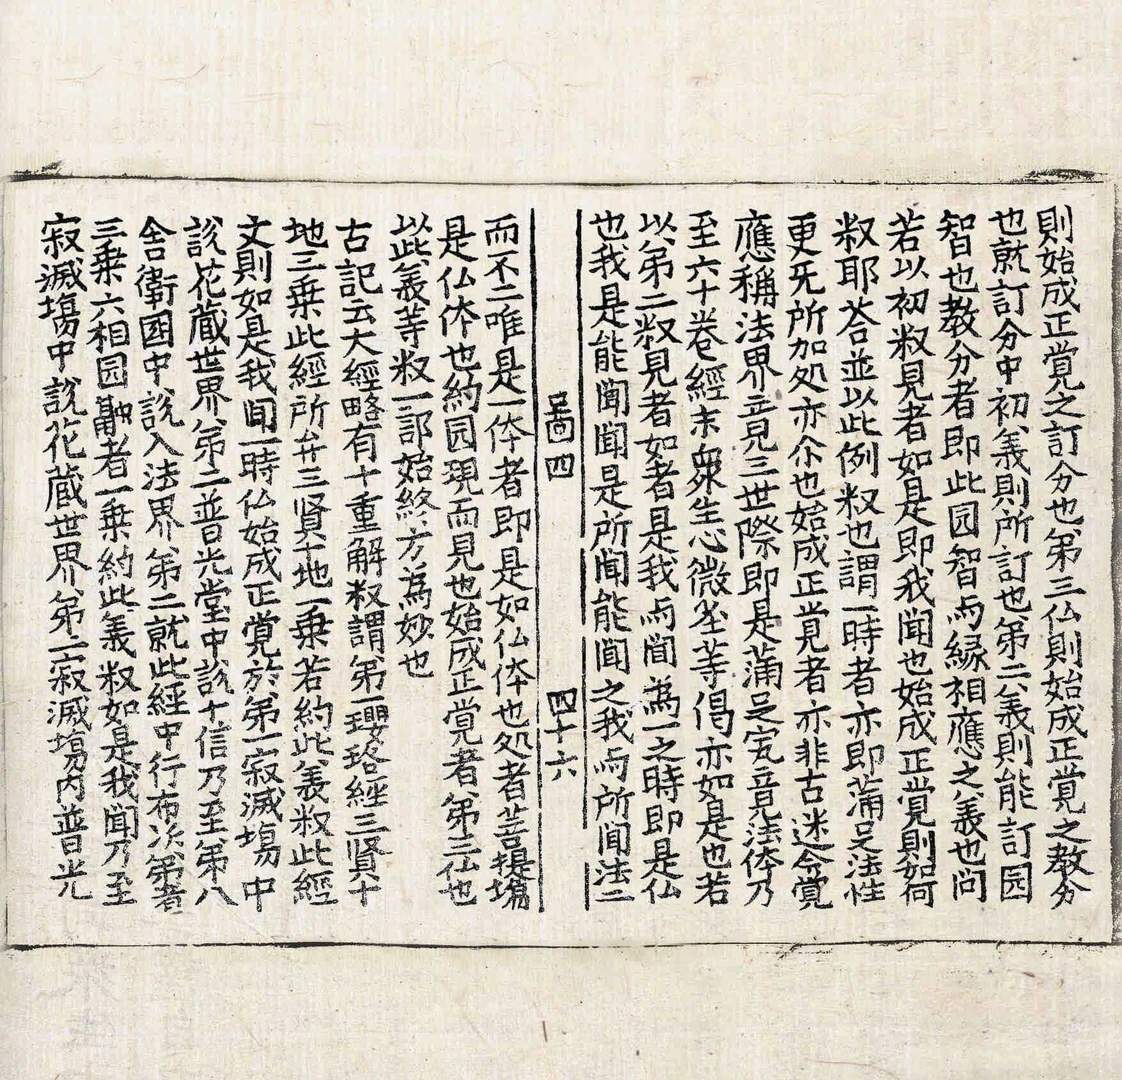 則始成正覚之訂分也苐三仏則始成正覚之教分
也就訂分中初義則所訂也苐二義則能訂园
智也教分者即此园智与縁相應之義也问
若以初权見者如是即我闻也始成正覚則如何
权耶荅並以此例权也謂一時者亦即滿足法性
更旡所加処亦尒也始成正覚者亦非古迷今覚
應稱法界音見三世際即是滿足寂音見法体乃
至六十卷經末衆生心微塵等偈亦如是也若
以苐二权見者如者是我与闻為一之時即是仏
也我是能闻闻是所闻能闻之我与所闻法二
啚四
四十六
而不二唯是一体者即是如仏体也処者菩提塲
是仏体也約园現而見也始成正覚者苐三仏也
以此義等权一部始終方為妙也
古記云大經略有十重解权謂苐一瓔珞經三賢十
地三乗此經所弁三賢十地一乗若約此義权此經
文則如是我闻一時仏始成正覚於苐一寂滅塲中
說花蔵世界苐二普光堂中說十信乃至苐八
舍衛國中說入法界苐二就此經中行布次苐者
三乗六相园融者一乗約此義权如是我闻乃至
寂滅塲中說花蔵世界苐二寂滅塲内普光